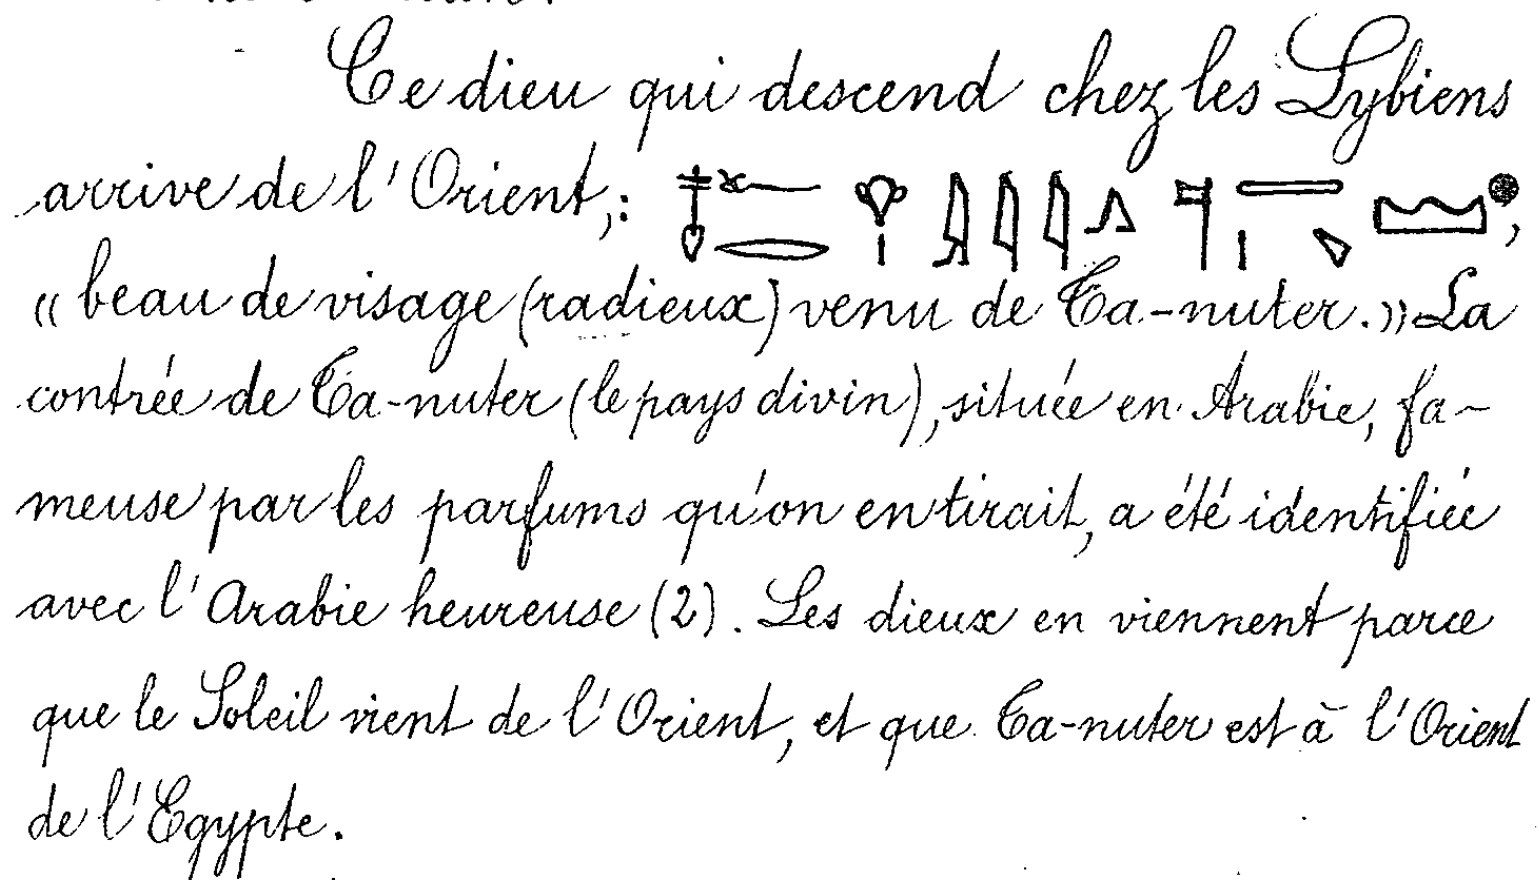 Ce dieu qui descend chez les Lybiens
arrive de l'Orient,: 𓄤𓆑𓂋 𓁷𓏤 𓇍𓇋𓇋𓂻 𓊹𓇾𓏤 𓈉,
« beau de visage (radieux) venu de Ta-nuter.» La
contrée de Ta-nuter (le pays divin), située en Arabie, fa-
meuse par les parfums qu'on en tirait, a été identifiée
avec l'Arabie heureuse (2). Les dieux en viennent parce
que le Soleil vient de l'Orient, et que Ta-nuter est à l'Orient
de l'Egypte.